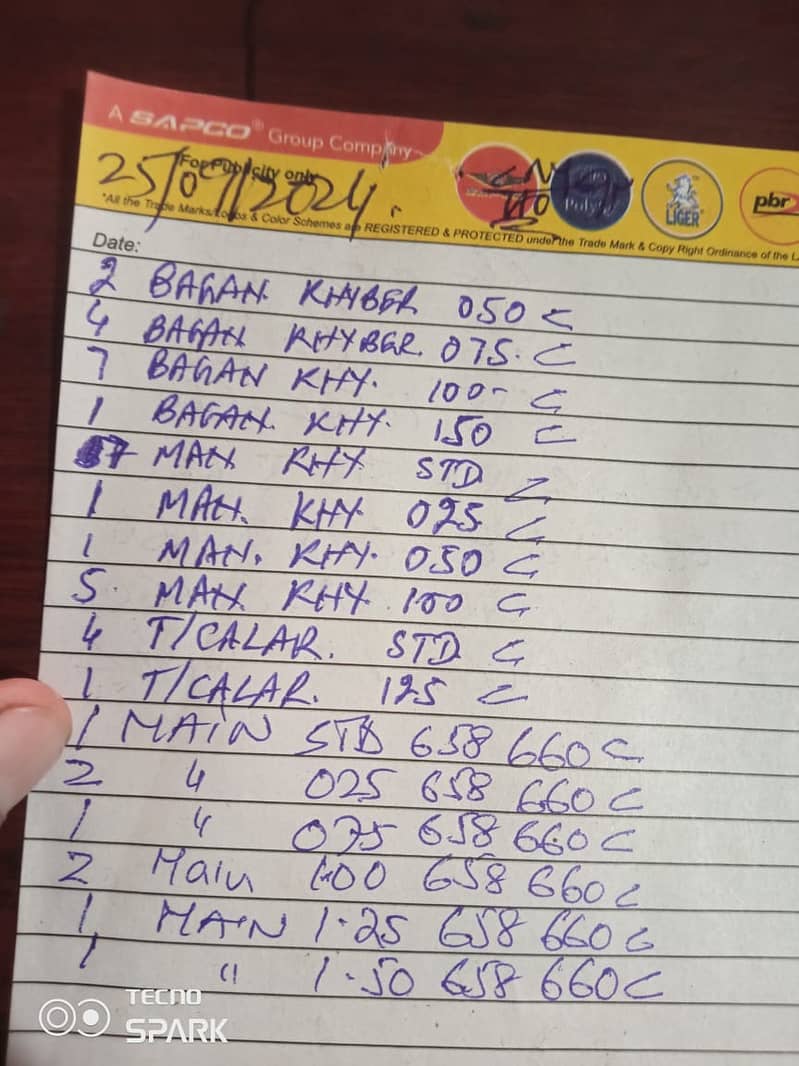 A SAPCO® Group Company
For Publicity only
25/09/2024.
LIGER
pbr
*All the Trade Marks, Logos & Color Schemes are REGISTERED & PROTECTED under the Trade Mark & Copy Right Ordinance of the
Date:
2 BAGAN KHYBER 050 C
4 BAGAN KHYBER. 075. C
7 BAGAN KHY. 100- C
1 BAGAN. KHY. 150 C
7 MAN KHY STD C
1 MAN. KHY 025 C
1 MAN. KHY. 050 C
5. MAN KHY. 100 C
4 T/CALAR. STD C
1 T/CALAR. 125 C
1 MAIN STD 658 660 C
2 " 025 658 660 C
1 " 075 658 660 C
2 Main 1.00 658 660 C
1 MAIN 1.25 658 660 C
1 " 1.50 658 660 C
TECNO
SPARK